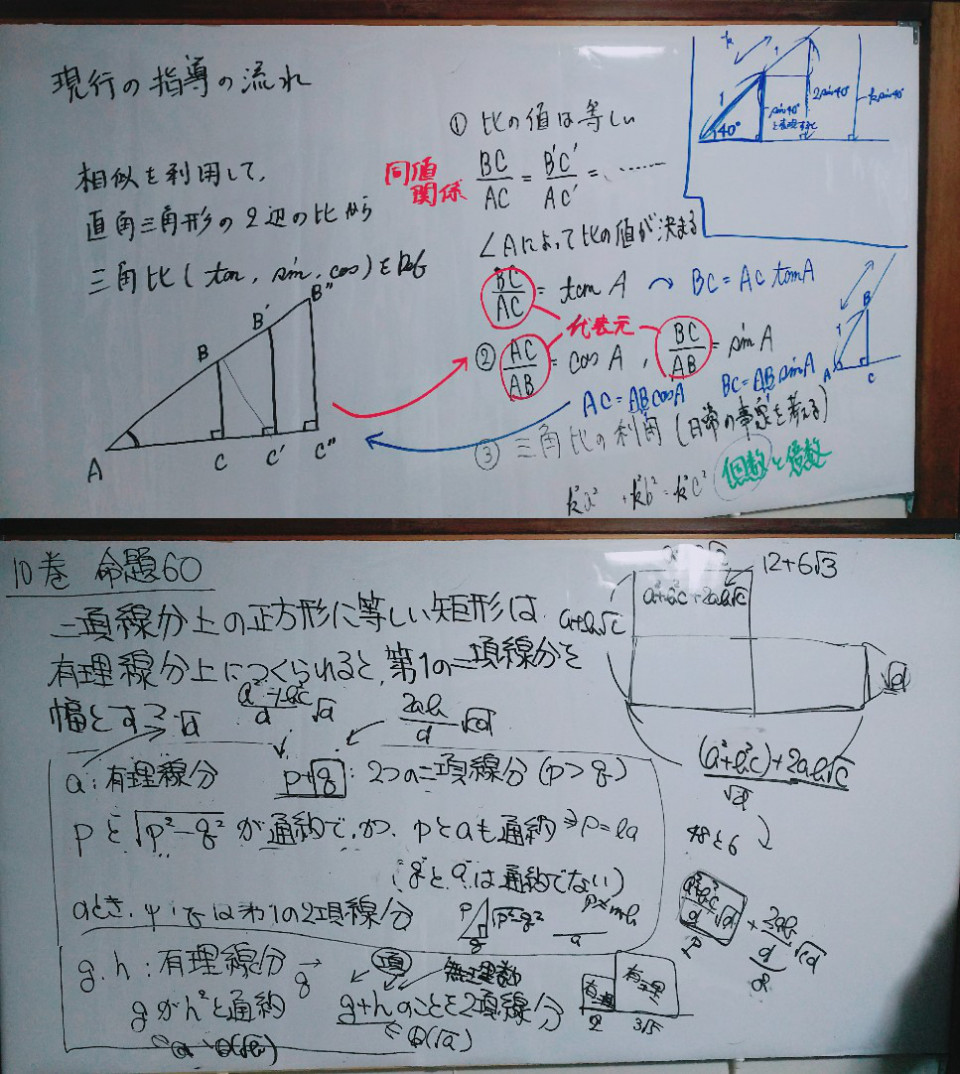 現行の指導の流れ
相似を利用して、
直角三角形の2辺の比から
三角比(tan, sin, cos)をDef
A
B
B'
B"
C
C'
C"
① 比の値は等しい
同値
関係
BC/AC = B'C'/AC' = ・・・・・・
∠Aによって比の値が決まる
BC/AC = tan A ～ BC = AC tan A
代表元
② AC/AB = cos A , BC/AB = sin A
AC = AB cosA
BC = AB sinA
③ 三角比の利用 (日常の事象を考える)
k²a² + k²b² = k²c²
個数と倍数
k
1
1
40°
sin40°
2sin40°
k sin40°
1
A
B
C
10巻 命題60
二項線分上の正方形に等しい矩形は、
有理線分上につくられると、第1の二項線分を
幅とする
√d
(a²+b²c)/d √d
2ab/d √cd
a : 有理線分
p+q : 2つの二項線分 (p > q)
pと√p²−q² が通約で、かつ、pとaも通約 ⇒ p = la
は通約でない)
のとき、p+qは第1の2項線分
p
q
√p²−q²
a
g, h : 有理線分
項
無理数
gがh²と通約
g+hのことを2項線分
(√a)
有理
有理
2
3√5
a+b√c
a²+b²c+2ab√c
12+6√3
√d
(a²+b²c)+2ab√c
√d
48と6
(a²+b²c)/d √d + 2ab/d √cd
p
q